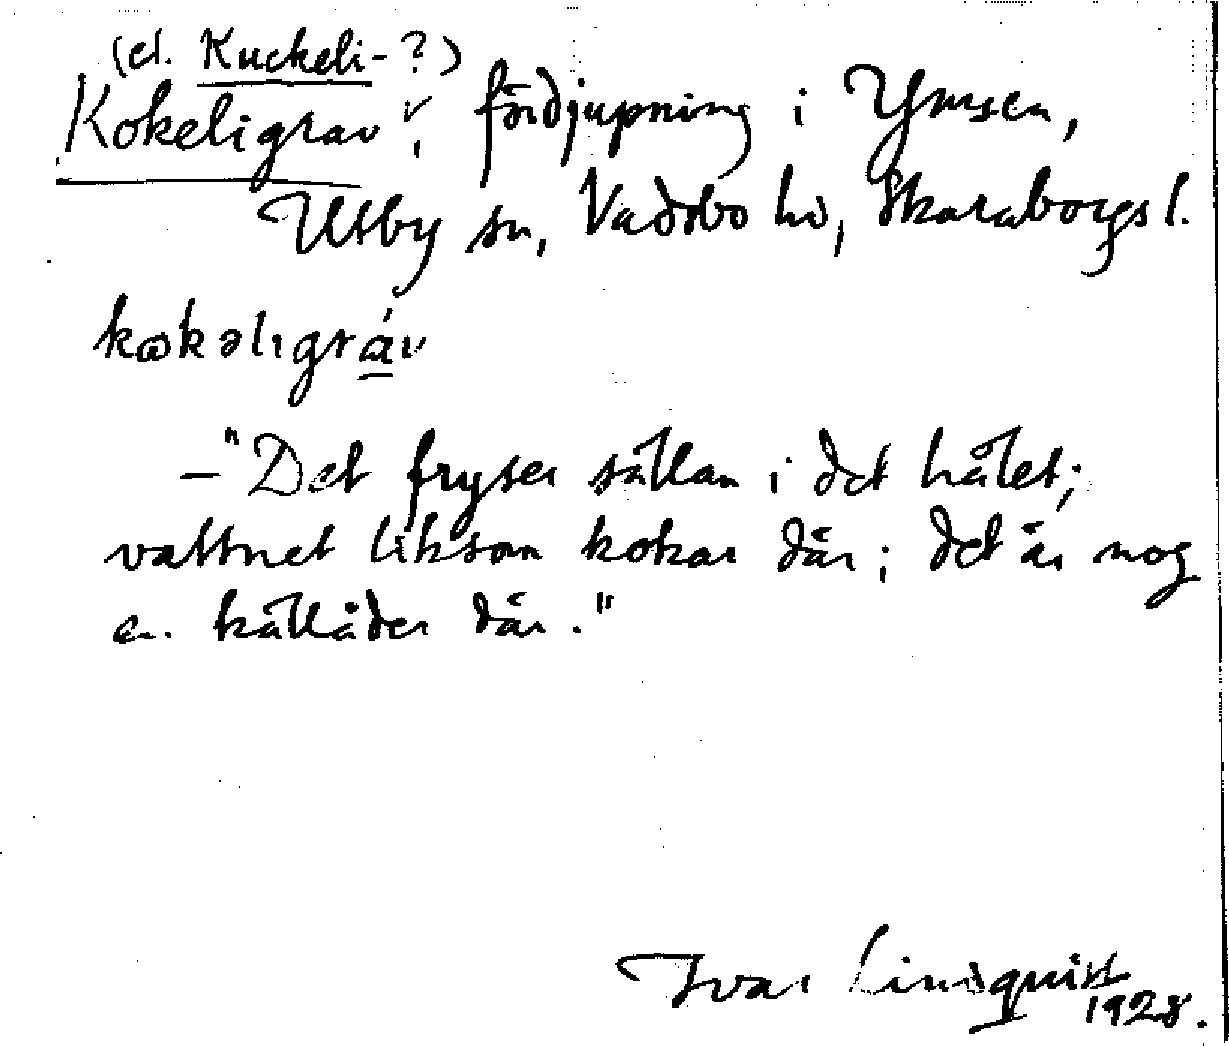 (el. Kuckeli-?)
Kokeligrav: fördjupning i Ymsen,
Utby sn, Vadsbo hd, Skaraborgs l.
kɷkəlıgráv
–"Det fryser sällan i det hålet;
vattnet liksom kokar där; det är nog
en källåder där."
Ivar Lindquist
1928.